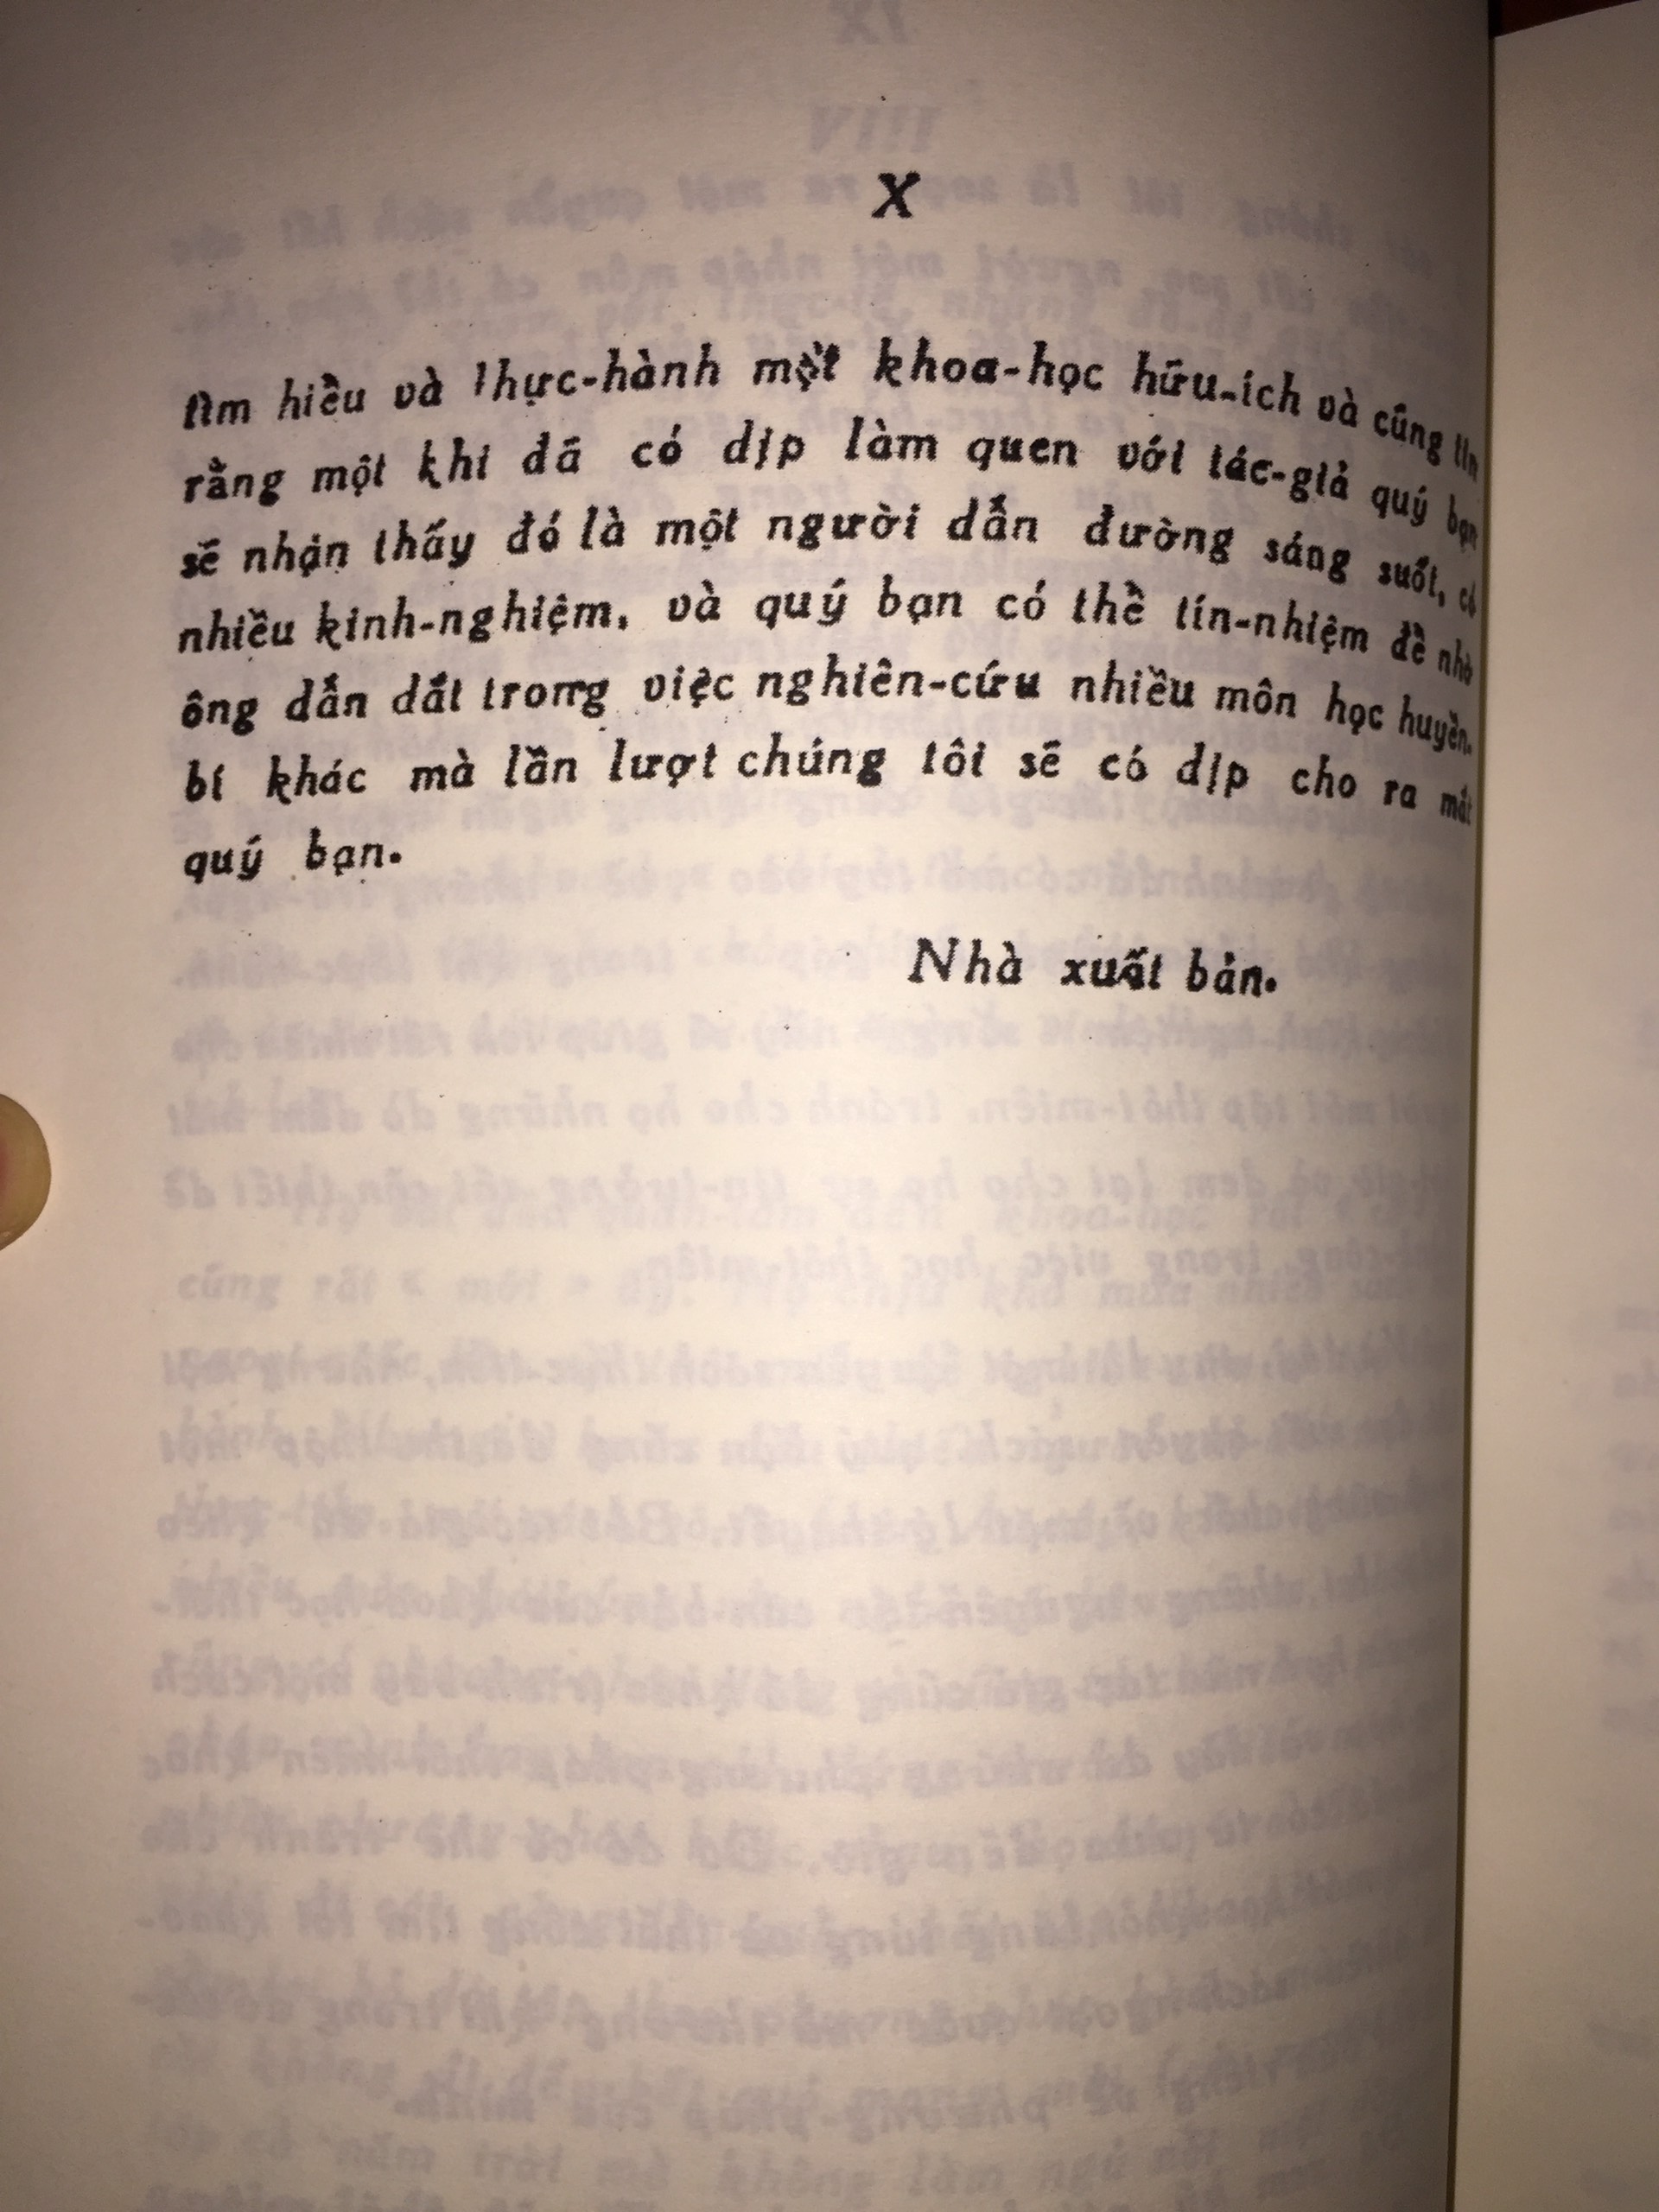 X
tìm hiểu và thực-hành một khoa-học hữu-ích và cũng tin
rằng một khi đã có dịp làm quen với tác-giả quý bạn
sẽ nhận thấy đó là một người dẫn đường sáng suốt, có
nhiều kinh-nghiệm, và quý bạn có thể tín-nhiệm để nhờ
ông dẫn dắt trong việc nghiên-cứu nhiều môn học huyền-
bí khác mà lần lượt chúng tôi sẽ có dịp cho ra mắt
quý bạn.
Nhà xuất bản.